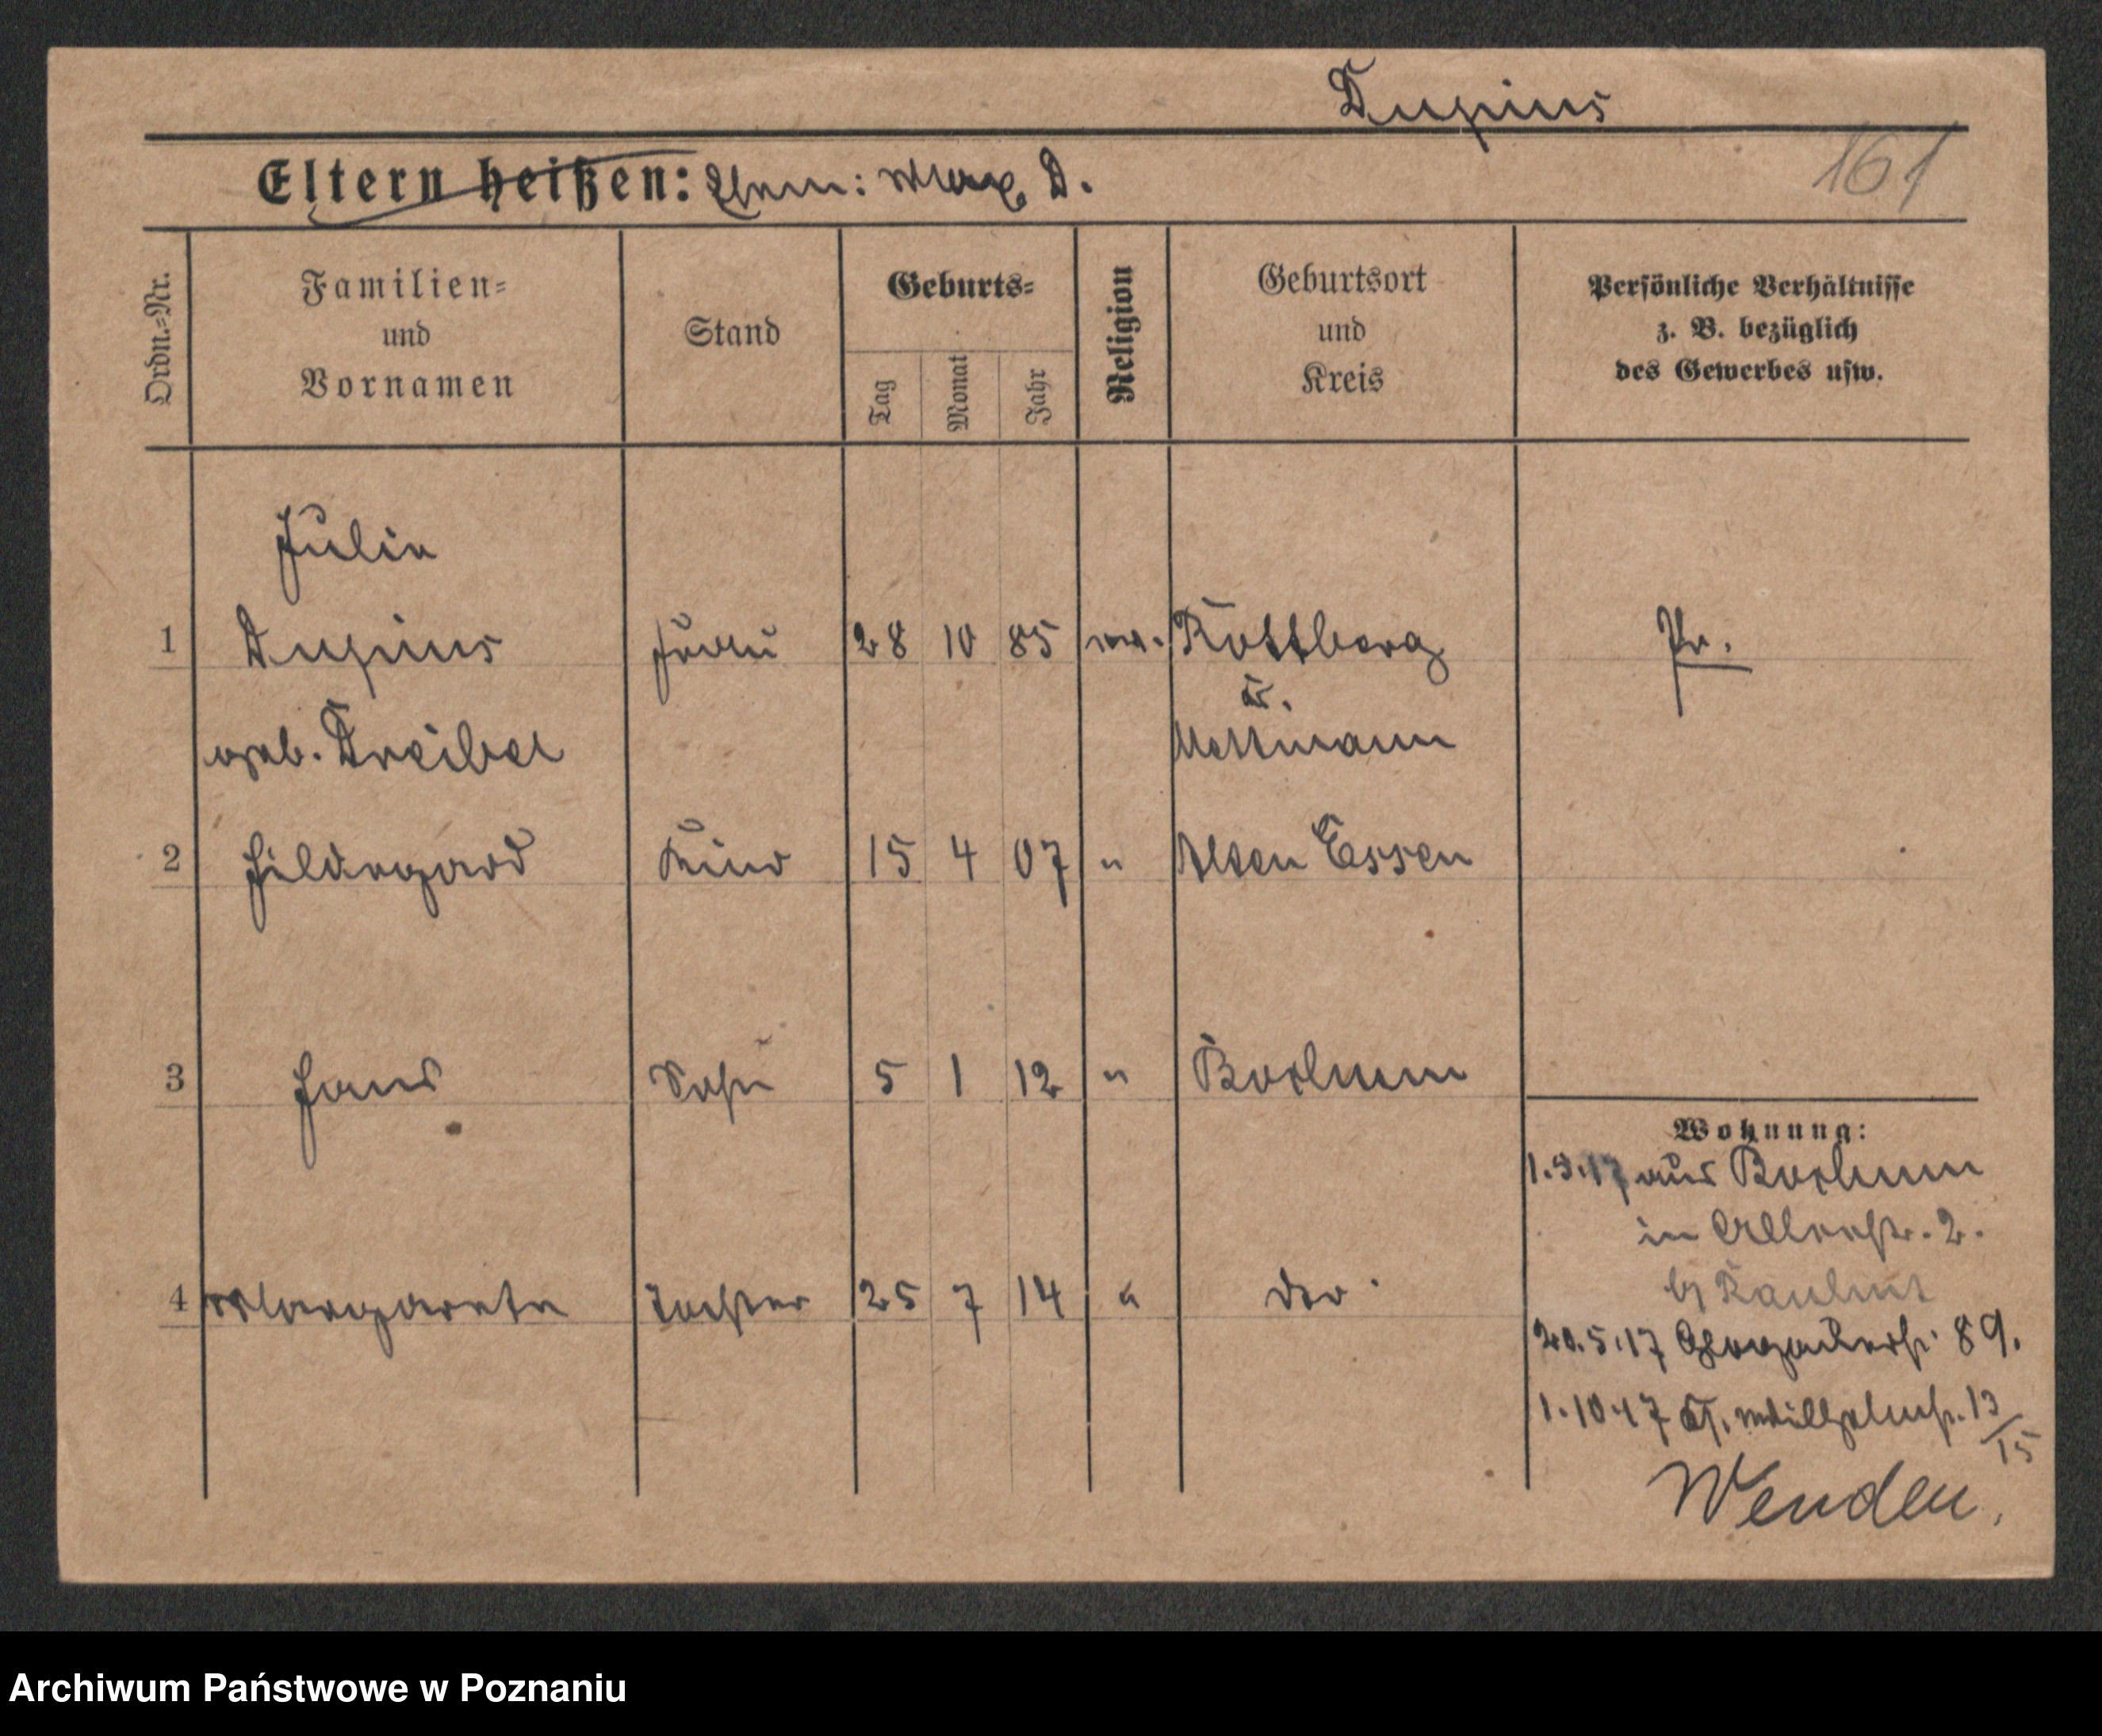 Dupius
161
Eltern heißen: Ehem: Max D.
Ordn.-Nr.
Familien-
und
Vornamen
Stand
Geburts-
Tag
Monat
Jahr
Religion
Geburtsort
und
Kreis
Persönliche Verhältnisse
z. B. bezüglich
des Gewerbes usw.
Julie
1 Dupius Frau 28 10 85 ev. Rottberg Pr.
Kr.
geb. Dreibel Mettmann
2 Hildegard Kind 15 4 07 " Alten Essen
3 Hans Sohn 5 1 12 " Bochum
Wohnung:
1.3.17 aus Bochum
in Allerstr. 2.
4 Margarete Tochter 25 7 14 " do
b/ Paulus
20.5.17 Glogauerstr. 89.
1.10.17 St. Wilhelmstr. 13/15
Wenden.
Archiwum Państwowe w Poznaniu